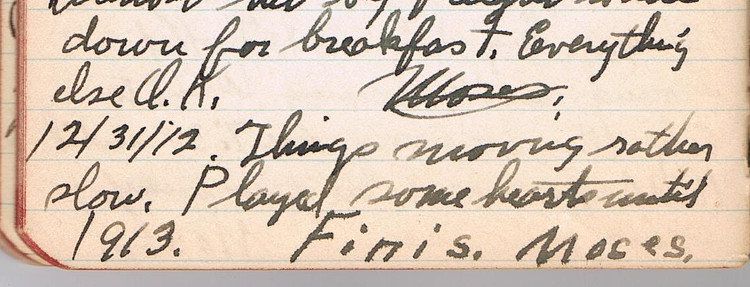 down for breakfast. Everything
else O.K. Moses.
12/31/12. Things moving rather
slow. Played some hearts until
1913. Finis. Moses.